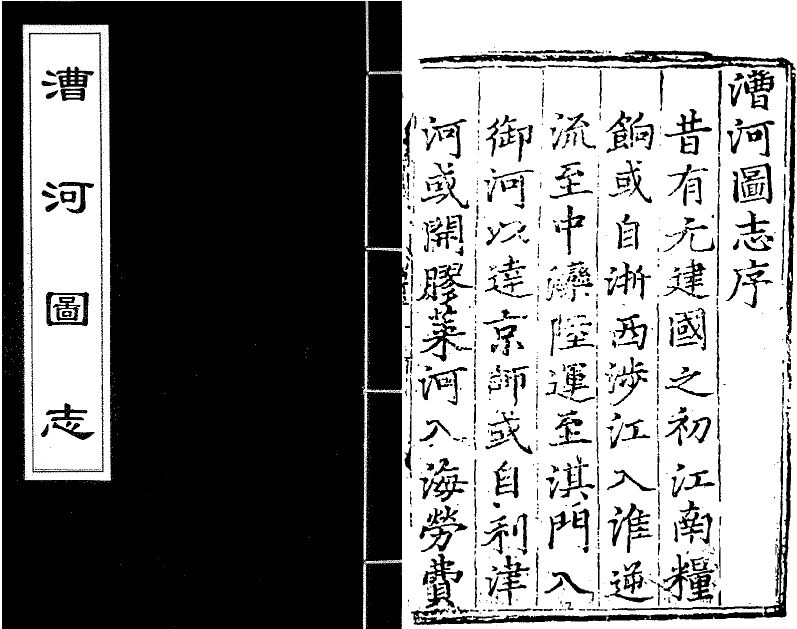 漕河圖志
漕河圖志序
昔有元建國之初江南糧
餉或自浙西涉江入淮逆
流至中灤陸運至淇門入
御河以達京師或自利津
河或開膠萊河入海勞費